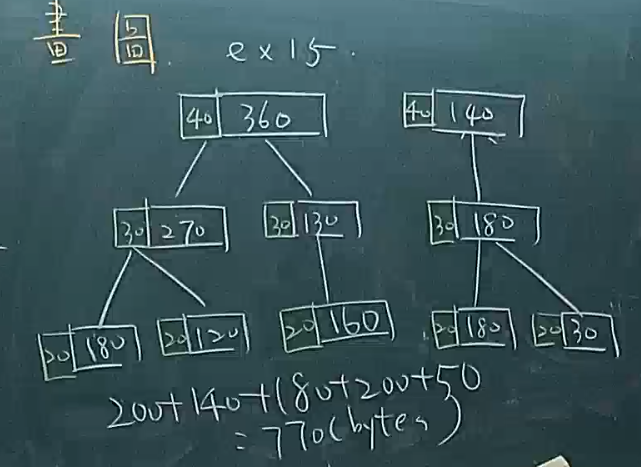 ex 15.
40 360 40 140
30 270 30 130 30 180
20 180 20 120 20 160 20 180 20 30
200+140+180+200+50
=770(bytes)